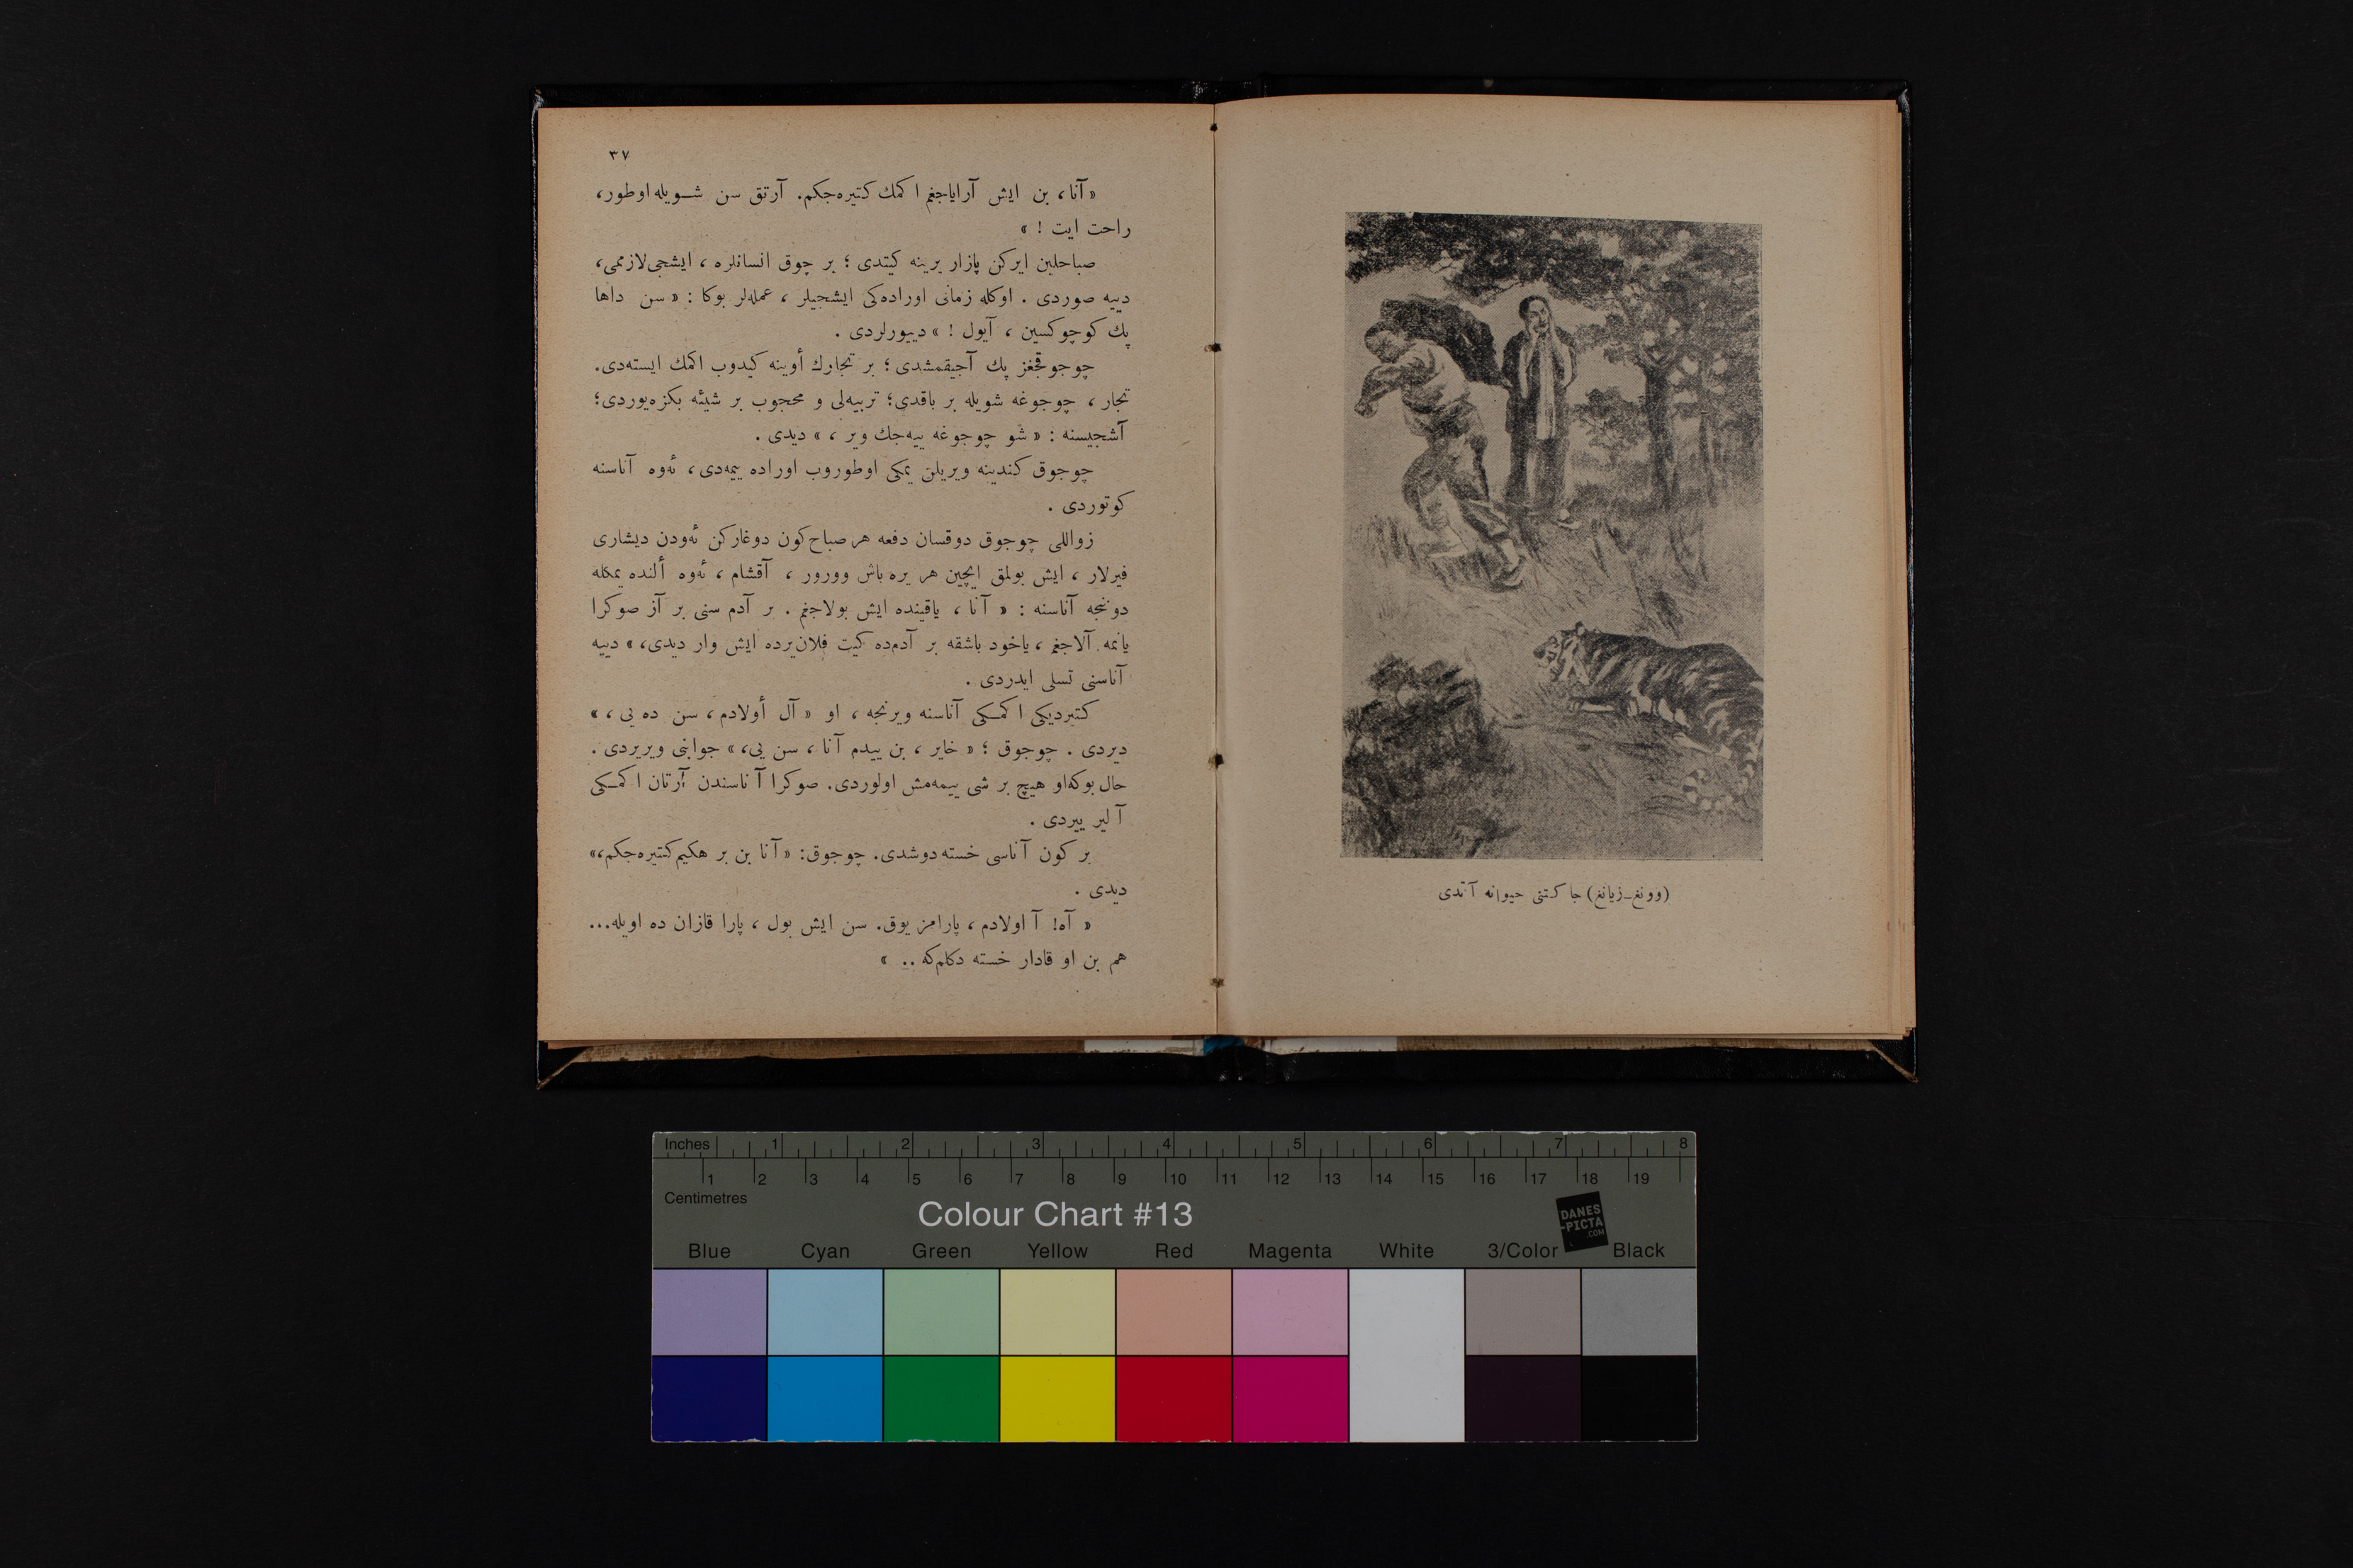 (وونغ-زیانغ) جاکتنی حیوانه آتدی
٣٧
« آنا، بن ایش آرایاجغم اکمك کتیره‌جکم. آرتق سن شویله اوطور،
راحت ایت ! »
صباحلین ایرکن پازار یرینه کیتدی ؛ بر چوق انسانلره ، ایشجی لازممی،
دییه صوردی . اوکله زمانی اوراده‌کی ایشجیلر ، عمله‌لر بوکا : « سن داها
پك کوچوکسین ، آیول ! » دییورلردی .
چوجوقجغز پك آجیقمشدی ؛ بر تجارك أوینه کیدوب اکمك ایسته‌دی.
تجار ، چوجوغه شویله بر باقدی؛ تربیه‌لی و محجوب بر شیئه بکزه‌یوردی؛
آشجیسنه : « شو چوجوغه ییه‌جك ویر ، » دیدی .
چوجوق کندینه ویریلن یمکی اوطوروب اوراده ییمه‌دی ، ئه‌وه آناسنه
کوتوردی .
زواللی چوجوق دوقسان دفعه هر صباح کون دوغارکن ئه‌ودن دیشاری
فیرلار ، ایش بولمق ایچین هر یره باش وورور ، آقشام ، ئه‌وه ألنده یمکله
دوننجه آناسنه : « آنا ، یاقینده ایش بولاجغم . بر آدم سنی بر آز صوکرا
یانمه آلاجغم ، یاخود باشقه بر آدم‌ده کیت فلان یرده ایش وار دیدی، » دییه
آناسنی تسلی ایدردی .
کتیردیکی اکمکی آناسنه ویرنجه ، او « آل أولادم ، سن ده یی ، »
دیردی . چوجوق ؛ « خایر ، بن ییدم آنا ، سن یی، » جوابنی ویریردی .
حال بوکه او هیچ بر شی ییمه‌مش اولوردی. صوکرا آناسندن آرتان اکمکی
آلیر ییردی .
بر کون آناسی خسته دوشدی. چوجوق: « آنا بن بر هکیم کتیره‌جکم،»
دیدی .
« آه! آ اولادم ، پارامز یوق. سن ایش بول ، پارا قازان ده اویله...
هم بن او قادار خسته دکلم که .. »
Inches 1 2 3 4 5 6 7 8
1 2 3 4 5 6 7 8 9 10 11 12 13 14 15 16 17 18 19
Centimetres
Colour Chart #13
DANES
-PICTA
.COM
Blue Cyan Green Yellow Red Magenta White 3/Color Black